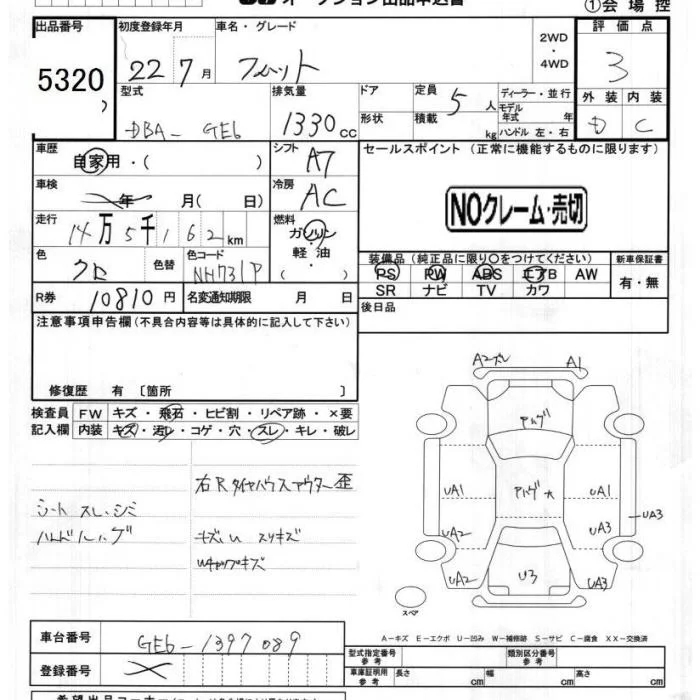 オークション出品申込書
①会場控
出品番号 初度登録年月 車名・グレード 2WD・4WD 評価点
5320 22年7月 フィット 3
型式 排気量 ドア 定員 5人 ディーラー・並行 外装 内装
DBA-GE6 1330cc 形状 積載 kg モデル年式 年 ハンドル 左・右 D C
車歴 自家用・( ) シフト AT セールスポイント (正常に機能するものに限ります)
車検 年 月(日) 冷房 AC
NOクレーム・売切
走行 14万5千162km 燃料 ガソリン・軽油・( )
色 クロ 色替 色コード NH731P
装備品(純正品に限り○をつけてください) 新車保証書
PS PW ABS エアB AW 有・無
SR ナビ TV カワ
R券 10810円 名変通知期限 月 日 後日品
注意事項申告欄(不具合内容等は具体的に記入して下さい)
修復歴 有〔箇所 〕
検査員 FW キズ・飛石・ヒビ割・リペア跡・×要
記入欄 内装 キズ・汚レ・コゲ・穴・スレ・キレ・破レ
右Rタイヤハウスアウター歪
シート スレ・シミ
キズU スリキズ
A2スレ A1
アハゲ
UA1 アハゲ大 UA1
UA3
UA2 UA3
UA2 U3 UA3
スペア
A-キズ E-エクボ U-凹み W-補修跡 S-サビ C-腐食 XX-交換済
車台番号 GE6-1397089
型式指定番号 参考 類別区分番号 参考
登録番号
車庫証明用 参考 長さ cm 幅 cm 高さ cm